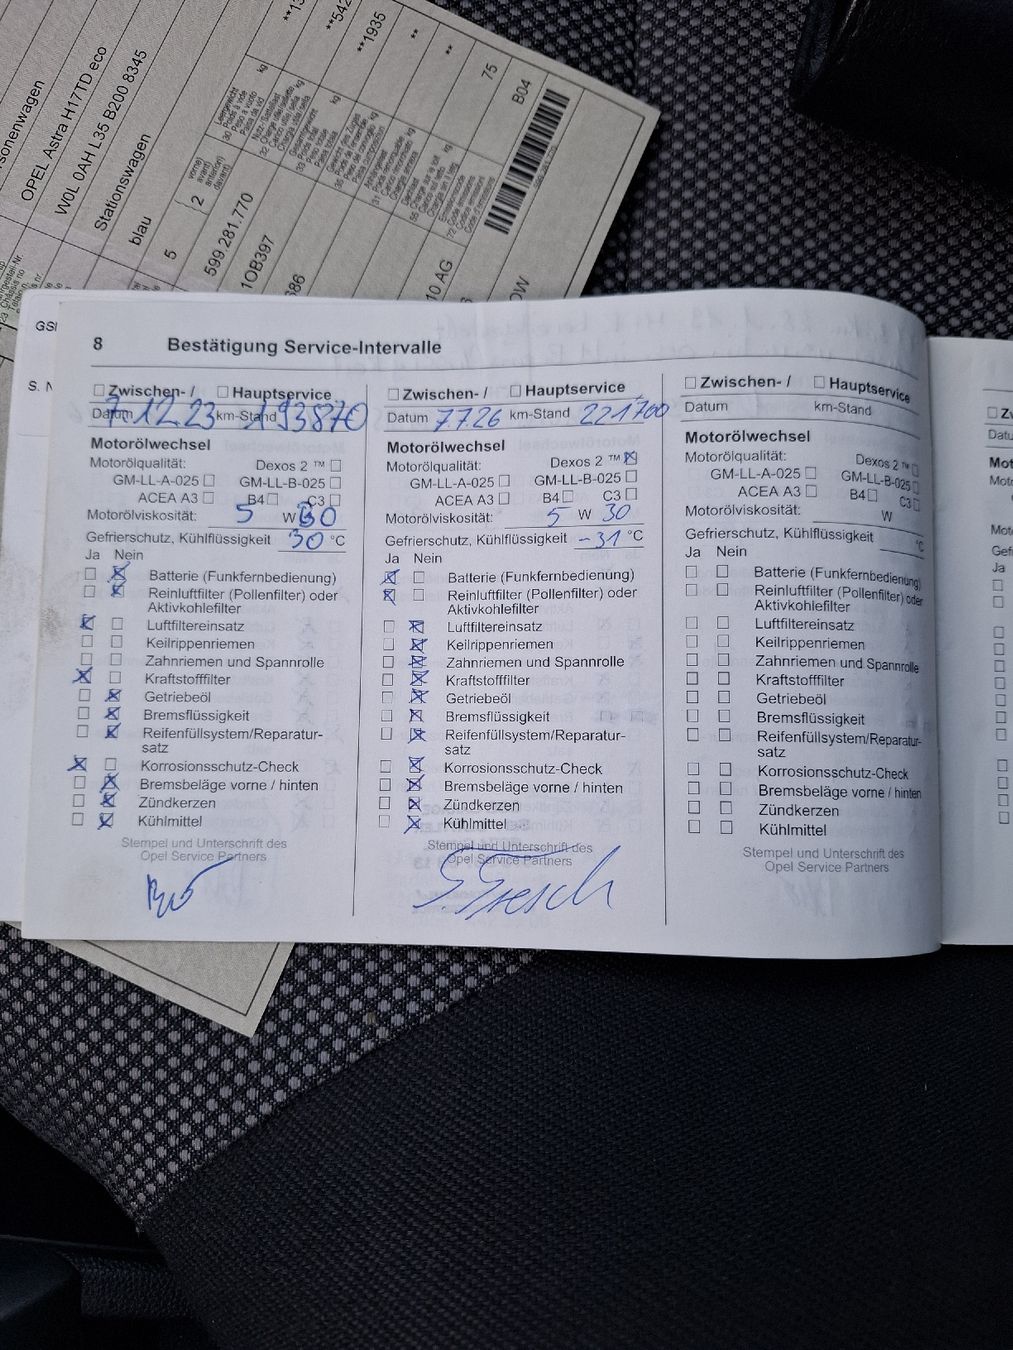 rsonenwagen
OPEL Astra H17TD eco
W0L 0AH L35 B200 8345
Stationswagen
blau
5
2
599.281.770
1OB397
**1935
**
**
75
B04
10 AG
Leergewicht
kg
GS
S. N
8 Bestätigung Service-Intervalle
Zwischen- / Hauptservice
Datum 7.12.23 km-Stand 193870
Motorölwechsel
Motorölqualität: Dexos 2 ™
GM-LL-A-025 GM-LL-B-025
ACEA A3 B4 C3
Motorölviskosität: 5 W 30
Gefrierschutz, Kühlflüssigkeit 30 °C
Ja Nein
Batterie (Funkfernbedienung)
Reinluftfilter (Pollenfilter) oder
Aktivkohlefilter
Luftfiltereinsatz
Keilrippenriemen
Zahnriemen und Spannrolle
Kraftstofffilter
Getriebeöl
Bremsflüssigkeit
Reifenfüllsystem/Reparatur-
satz
Korrosionsschutz-Check
Bremsbeläge vorne / hinten
Zündkerzen
Kühlmittel
Stempel und Unterschrift des
Opel Service Partners
Zwischen- / Hauptservice
Datum 7.7.26 km-Stand 221700
Motorölwechsel
Motorölqualität: Dexos 2 ™
GM-LL-A-025 GM-LL-B-025
ACEA A3 B4 C3
Motorölviskosität: 5 W 30
Gefrierschutz, Kühlflüssigkeit -31 °C
Ja Nein
Batterie (Funkfernbedienung)
Reinluftfilter (Pollenfilter) oder
Aktivkohlefilter
Luftfiltereinsatz
Keilrippenriemen
Zahnriemen und Spannrolle
Kraftstofffilter
Getriebeöl
Bremsflüssigkeit
Reifenfüllsystem/Reparatur-
satz
Korrosionsschutz-Check
Bremsbeläge vorne / hinten
Zündkerzen
Kühlmittel
Stempel und Unterschrift des
Opel Service Partners
Zwischen- / Hauptservice
Datum km-Stand
Motorölwechsel
Motorölqualität: Dexos 2 ™
GM-LL-A-025 GM-LL-B-025
ACEA A3 B4 C3
Motorölviskosität: W
Gefrierschutz, Kühlflüssigkeit °C
Ja Nein
Batterie (Funkfernbedienung)
Reinluftfilter (Pollenfilter) oder
Aktivkohlefilter
Luftfiltereinsatz
Keilrippenriemen
Zahnriemen und Spannrolle
Kraftstofffilter
Getriebeöl
Bremsflüssigkeit
Reifenfüllsystem/Reparatur-
satz
Korrosionsschutz-Check
Bremsbeläge vorne / hinten
Zündkerzen
Kühlmittel
Stempel und Unterschrift des
Opel Service Partners
Ja